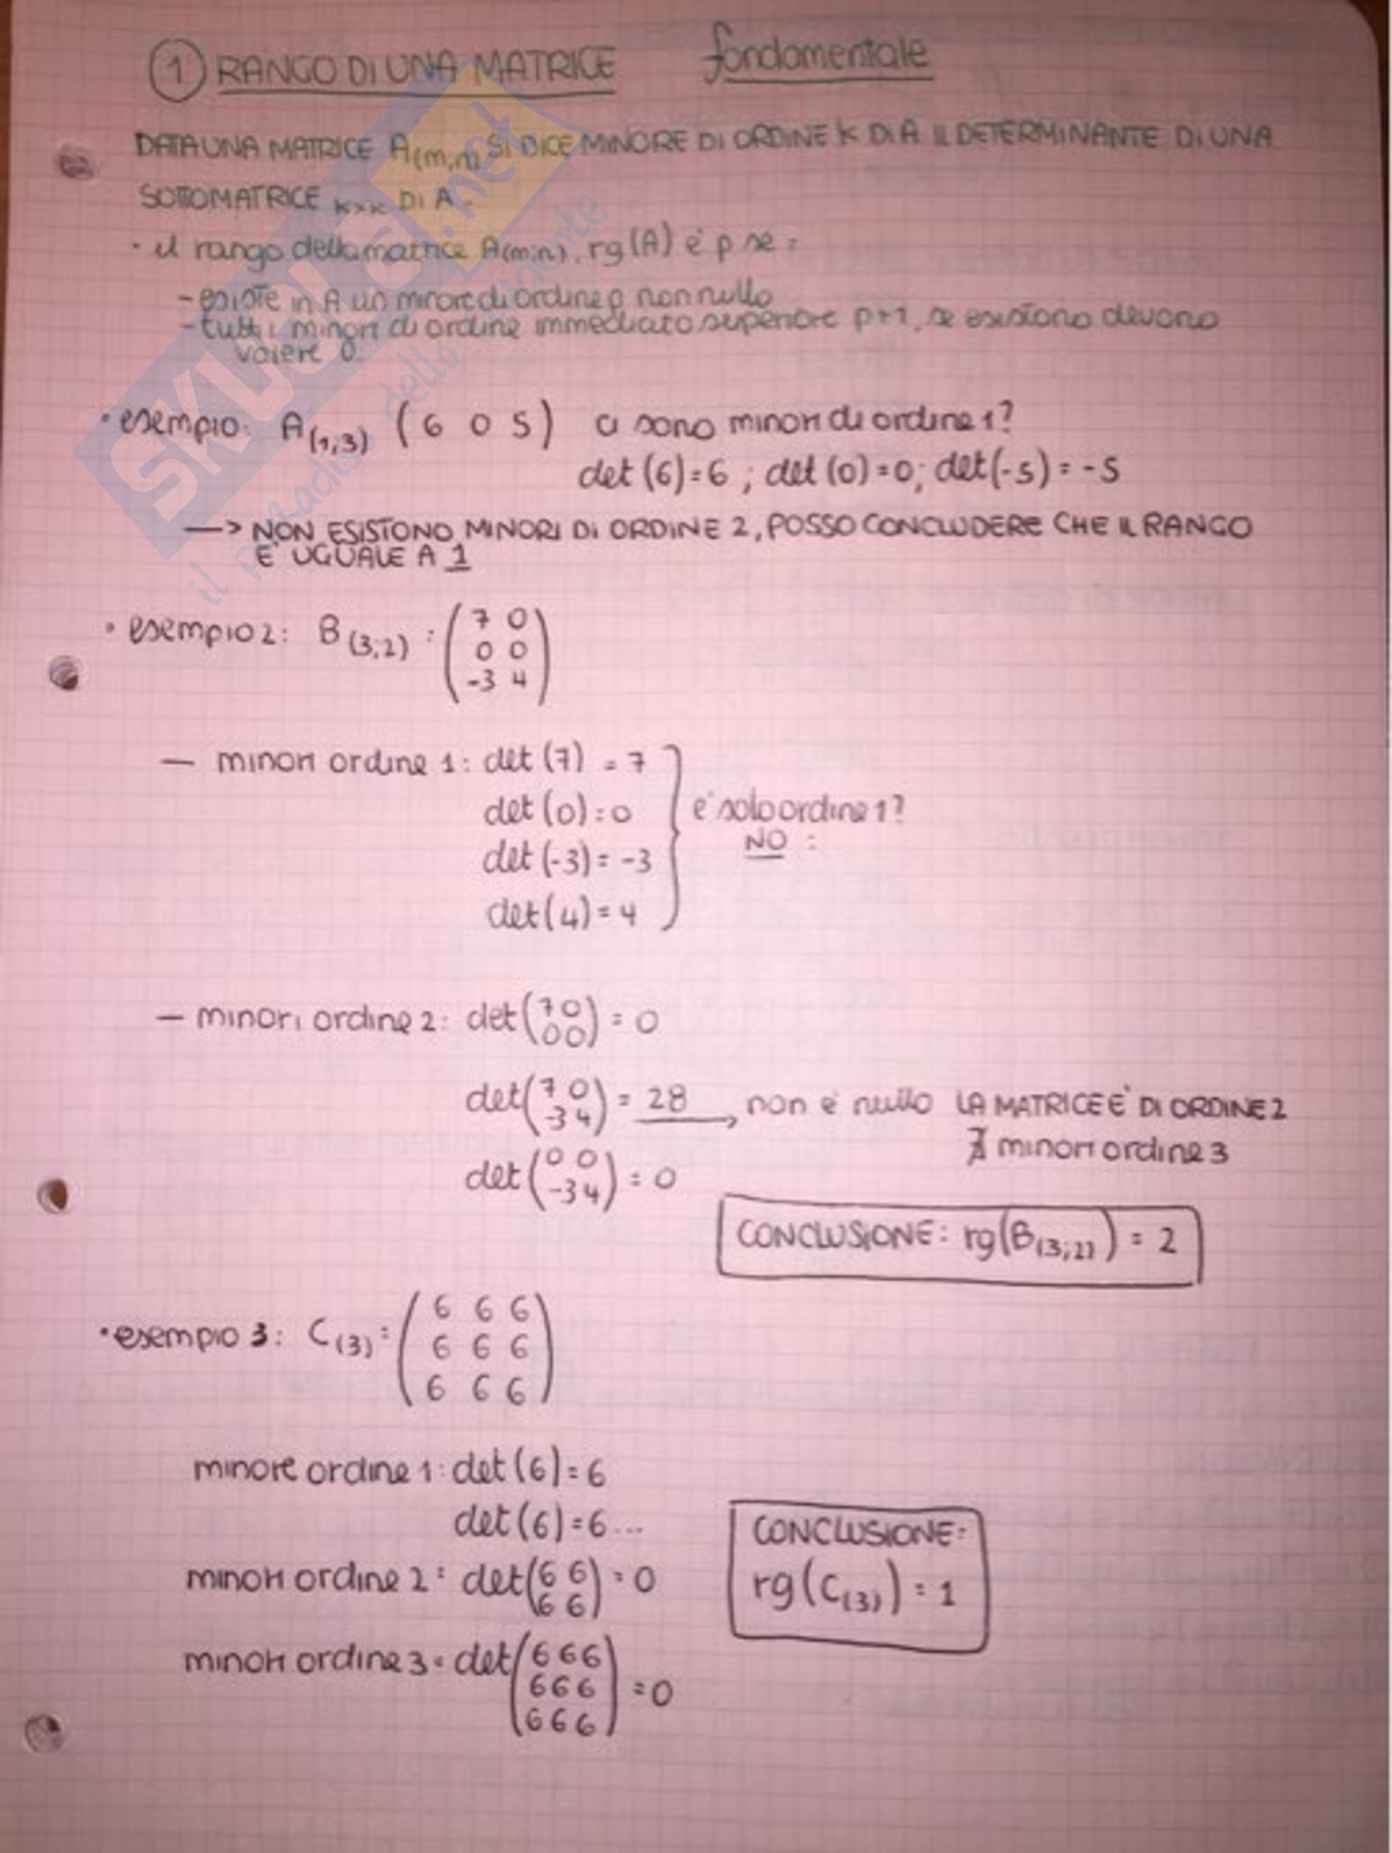 1 RANGO DI UNA MATRICE fondamentale
DATA UNA MATRICE A(m,n) SI DICE MINORE DI ORDINE K DI A IL DETERMINANTE DI UNA
SOTTOMATRICE K×K DI A.
• il rango della matrice A(m;n), rg(A) è p se:
- esiste in A un minore di ordine p non nullo
- tutti i minori di ordine immediato superiore p+1, se esistono devono
valere 0
• esempio: A(1,3) (6 0 5) ci sono minori di ordine 1?
det(6)=6 ; det(0)=0; det(-5)=-5
—> NON ESISTONO MINORI DI ORDINE 2, POSSO CONCLUDERE CHE IL RANGO
E' UGUALE A 1
• esempio 2: B(3;2) : (7 0
0 0
-3 4)
— minori ordine 1: det(7) = 7
det(0)=0 } è solo ordine 1?
NO :
det(-3)=-3
det(4)=4
— minori ordine 2: det(7 0
0 0) = 0
det(7 0
-3 4) = 28 → non è nullo LA MATRICE E' DI ORDINE 2
∄ minori ordine 3
det(0 0
-3 4) = 0
CONCLUSIONE: rg(B(3;2)) = 2
• esempio 3: C(3) = (6 6 6
6 6 6
6 6 6)
minore ordine 1: det(6)=6
det(6)=6...
minori ordine 2: det(6 6
6 6) = 0
minori ordine 3: det(6 6 6
6 6 6
6 6 6) = 0
CONCLUSIONE:
rg(C(3)) = 1
SKUOLA.net
il paradiso dello studente